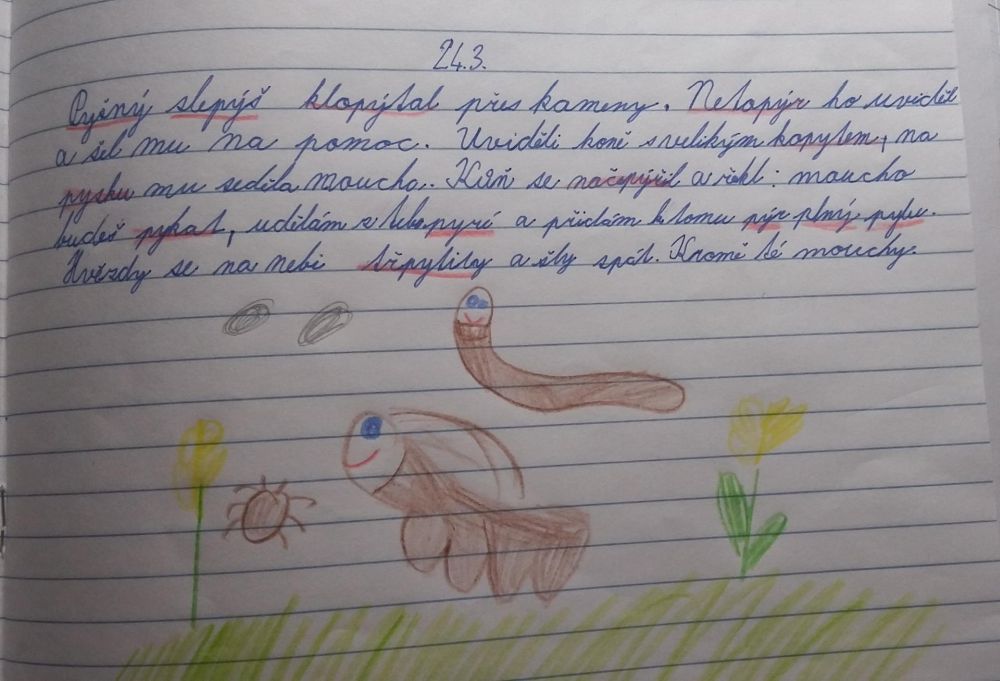 24.3.
Pyšný slepýš klopýtal přes kameny. Netopýr ho uviděl
a šel mu na pomoc. Uviděli koně s velikým kopytem, na
pysku mu seděla moucha. Kůň se načepýřil a řekl: moucho
budeš pykat, udělám z tebe pyré a přidám k tomu pýr plný pylu.
Hvězdy se na nebi třpytily a šly spát. Kromě té mouchy.